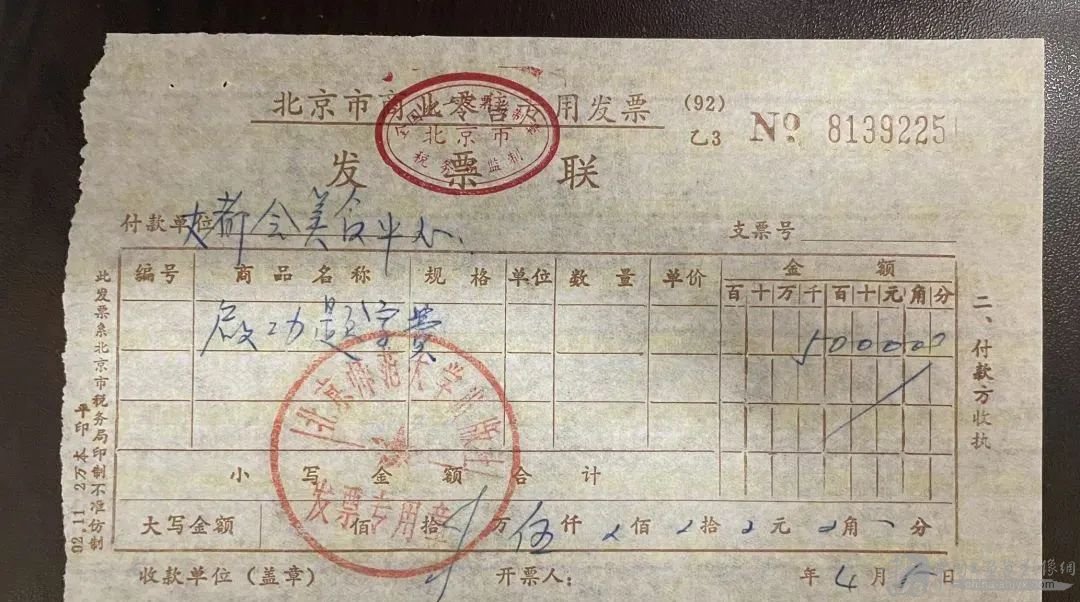 北京市商业零售专用发票 (92)
乙3 № 8139225
发票联
北京市
税务局监制
付款单位 大都会美食中心
支票号
编号 商品名称 规格 单位 数量 单价 金额
百十万千百十元角分
启功题字费 500000
小写金额合计
大写金额 佰 拾 万 伍仟 佰 拾 元 角 分
收款单位（盖章） 开票人： 年 4 月 日
北京师范大学出版社
发票专用章
二、付款方收执
此发票系北京市税务局印制不准仿制
92.11 2万本 平印